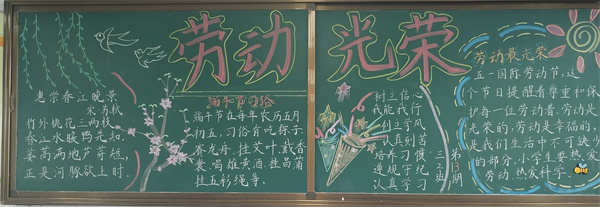 劳动 光荣
惠崇春江晚景
宋 苏轼
竹外桃花三两枝
春江水暖鸭先知
蒌蒿满地芦芽短,
正是河豚欲上时.
端午节习俗
端午节在每年农历五月
初五,习俗有吃粽子
赛龙舟,挂艾叶,戴香
囊,喝雄黄酒,挂菖蒲
挂五彩绳等.
树立信心
我能我行
刻苦
培养习惯
遵规守纪
认真学习
三、三班
第13期
劳动最光荣
五一国际劳动节,这
个节日提醒着尊重和保
护每一位劳动者.劳动是
光荣的,劳动是幸福的,
是我们生活中不可缺少
的部分,小学生要热爱
劳动,热爱科学.